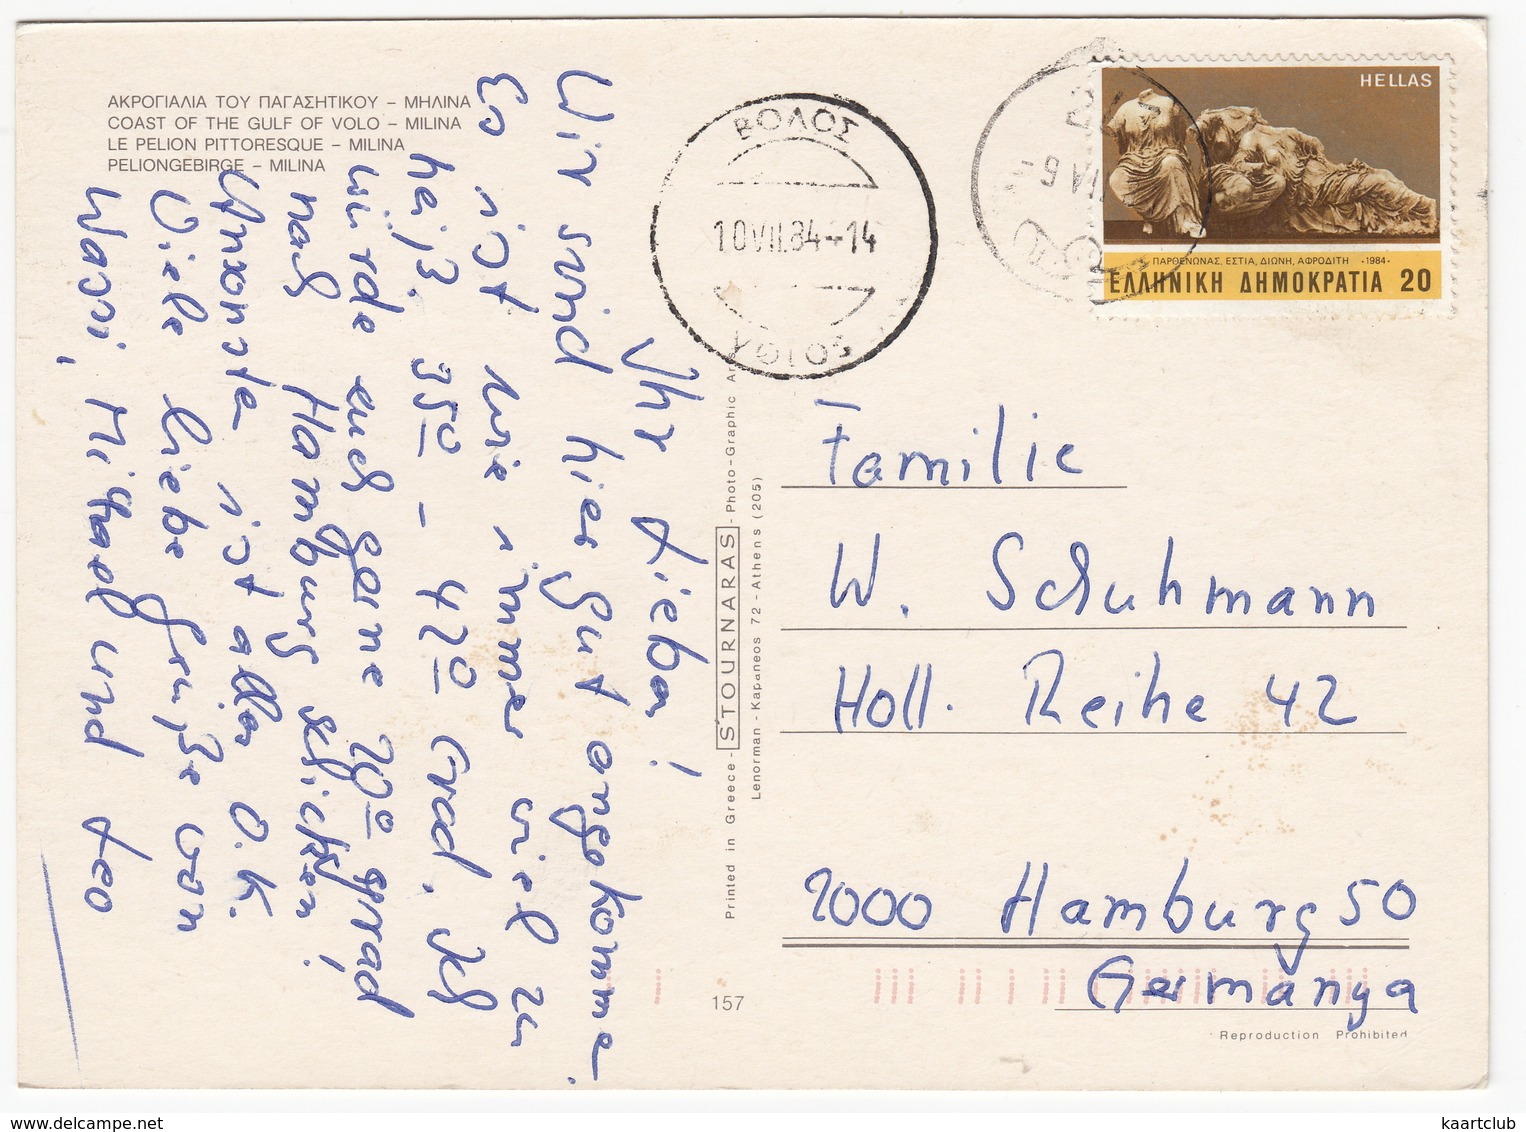 ΑΚΡΟΓΙΑΛΙΑ ΤΟΥ ΠΑΓΑΣΗΤΙΚΟΥ – ΜΗΛΙΝΑ
COAST OF THE GULF OF VOLO – MILINA
LE PELION PITTORESQUE – MILINA
PELIONGEBIRGE – MILINA
Ihr Lieben!
Wir sind hier gut angekomme.
Es ist wie immer viel zu
heiß. 35° – 42° Grad. Ich
würde euch gerne 20° grad
nach Hamburg schicken!
Ansonsten ist alles O.K.
Viele liebe Grüße von
Wasi, Michael und Leo
ΒΟΛΟΣ
10 VII.84-14
HELLAS
ΠΑΡΘΕΝΩΝΑΣ, ΕΣΤΙΑ, ΔΙΩΝΗ, ΑΦΡΟΔΙΤΗ -1984-
ΕΛΛΗΝΙΚΗ ΔΗΜΟΚΡΑΤΙΑ 20
Printed in Greece - STOURNARAS - Photo-Graphic Ar
Lenorman - Kapaneos 72 - Athens (205)
Familie
W. Schuhmann
Holl. Reihe 42
2000 Hamburg 50
Germanya
157
Reproduction Prohibited
kaartclub
www.delcampe.net